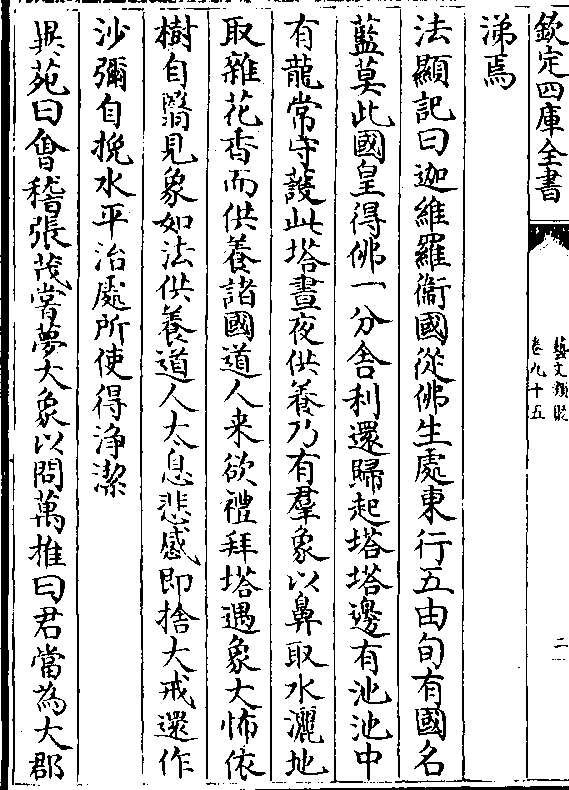 欽定四庫全書
藝文類聚
卷九十五
二
涕焉
法顯記曰迦維羅衞國從佛生處東行五由旬有國名
藍莫此國皇得佛一分舎利還歸起塔塔邊有池池中
有龍常守護此塔晝夜供養乃有羣象以鼻取水灑地
取雜花香而供養諸國道人来欲禮拜塔遇象大怖依
樹自翳見象如法供養道人太息悲感即捨大戒還作
沙彌自挽水平治處所使得淨潔
異苑曰會稽張茂甞夢大象以問萬推曰君當為大郡